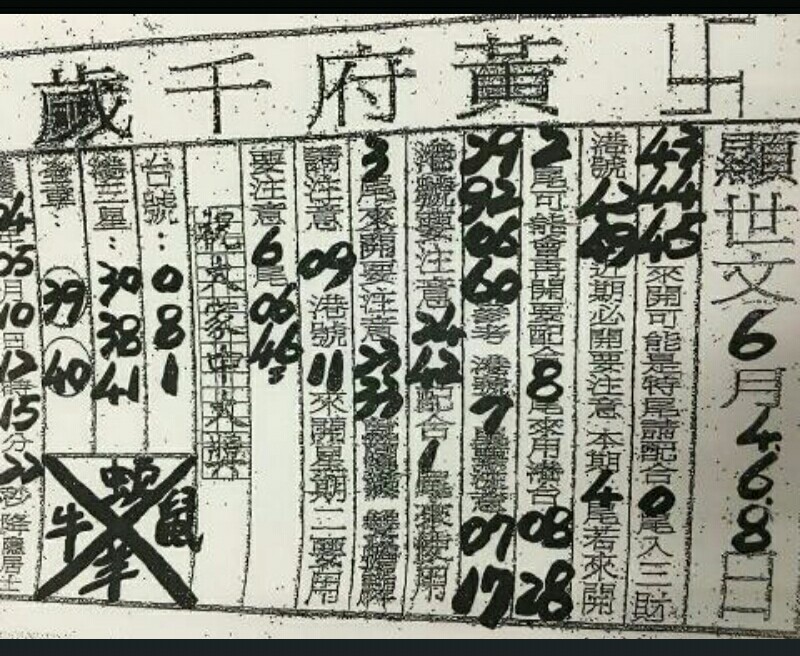 卐 黃府千歲
顯世文6月4.6.8日
43 44 45來開可能是特尾請配合0尾入三財
港號42 49近期必開要注意本期4尾若來開
2尾可能會再開要配合8尾來用港台08 28
29 92 06 60參考 港號7 07 17
港號要注意24 42配合1尾來使用
3尾來開要注意 33
請注意09港號11來開星期二要用
要注意6尾06 46
祝大家中大獎
台號:0 8 1
港三星:30 38 41
39 40
蛇 牛 鼠 羊
年05月10日 12 15分22秒降 居士